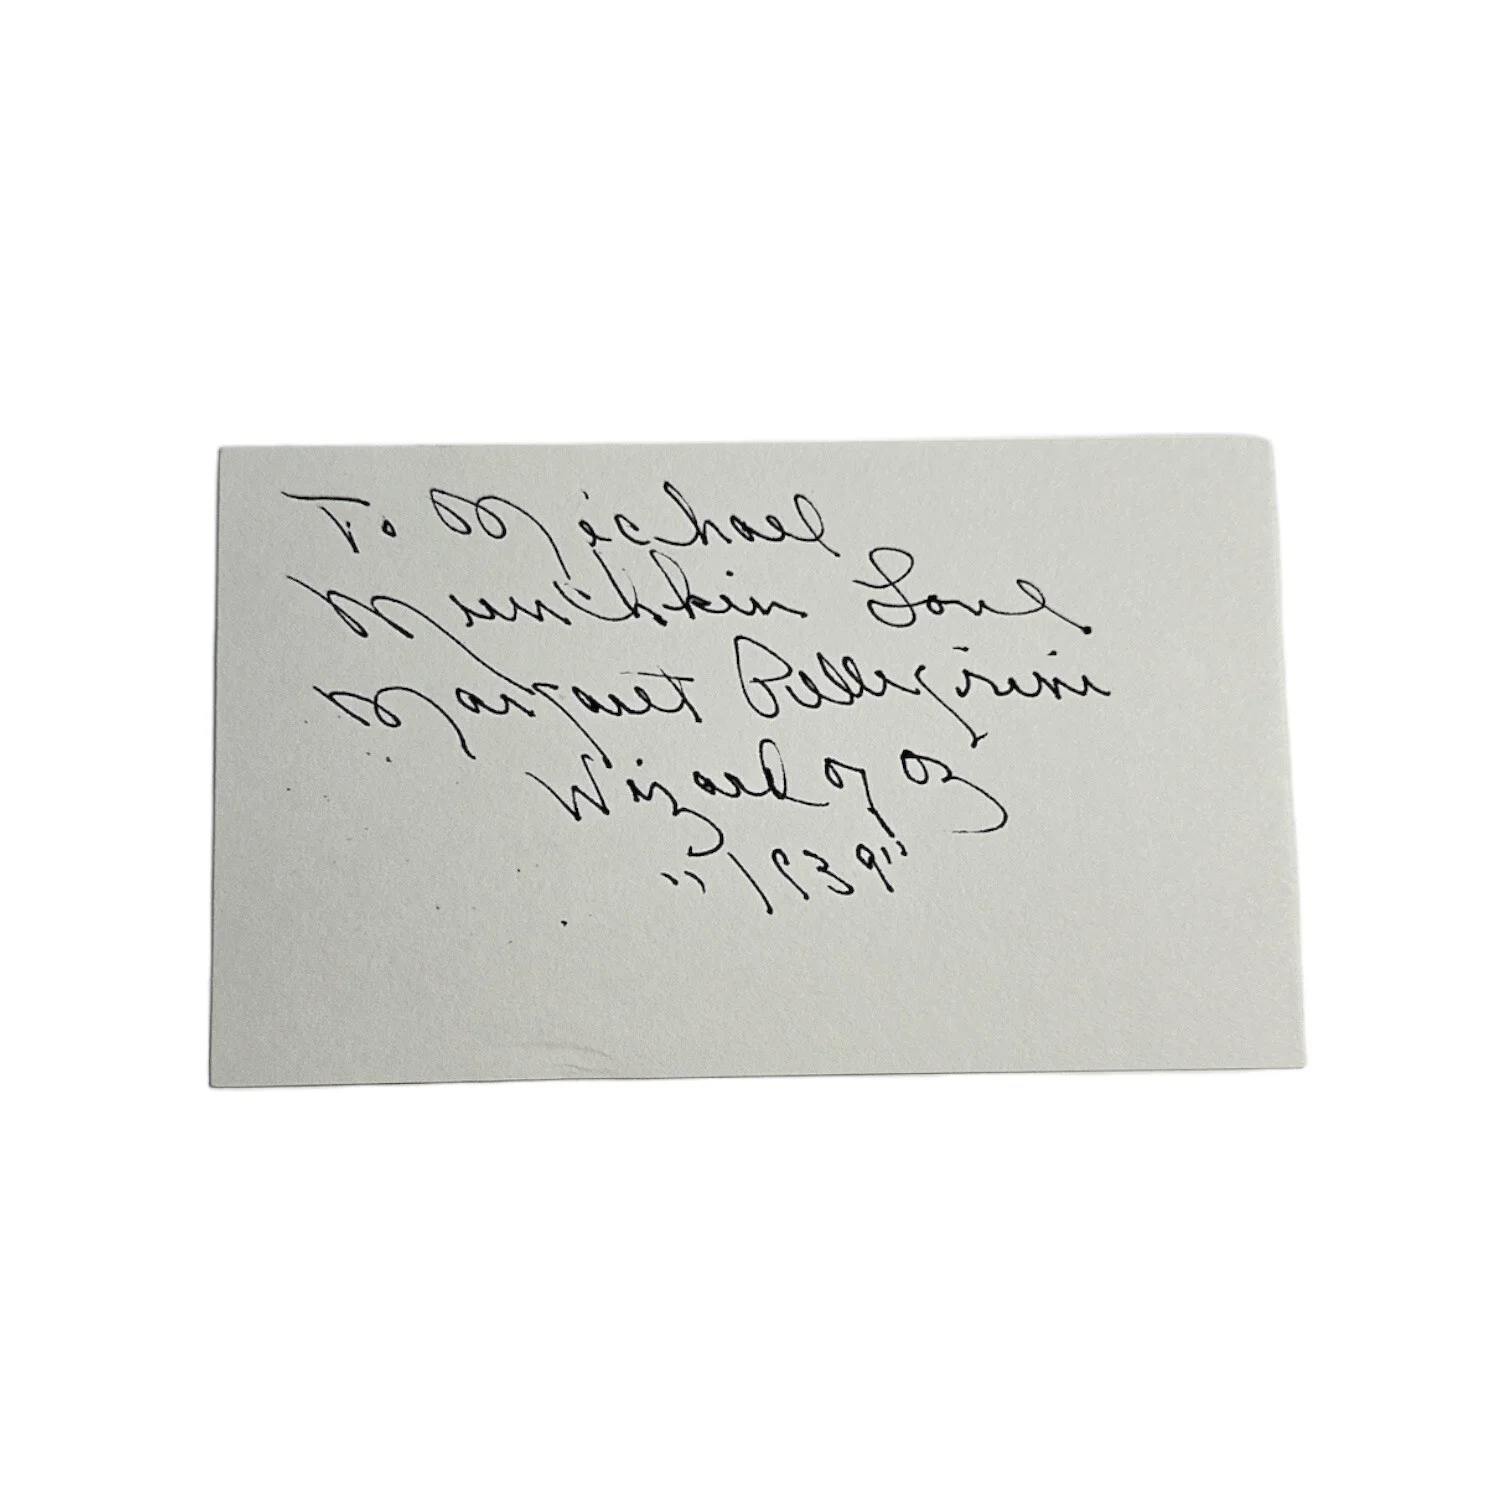 To Michael
Munchkin Love
Margaret Pellegrini
Wizard of Oz
"1939"